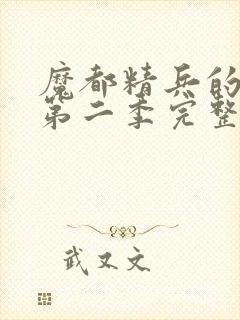 魔都精兵的
第二季完整
武又文